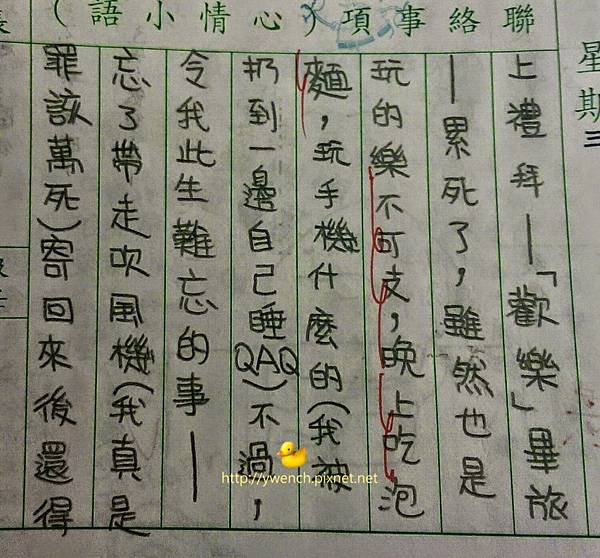 聯絡事項(心情小語)
星期三
上禮拜—「歡樂」畢旅
—累死了,雖然也是
玩的樂不可支,晚上吃泡
麵,玩手機什麼的(我被
扔到一邊自己睡QAQ)不過,
令我此生難忘的事—
忘了帶走吹風機(我真是
罪該萬死)寄回來後還得
http://ywench.pixnet.net